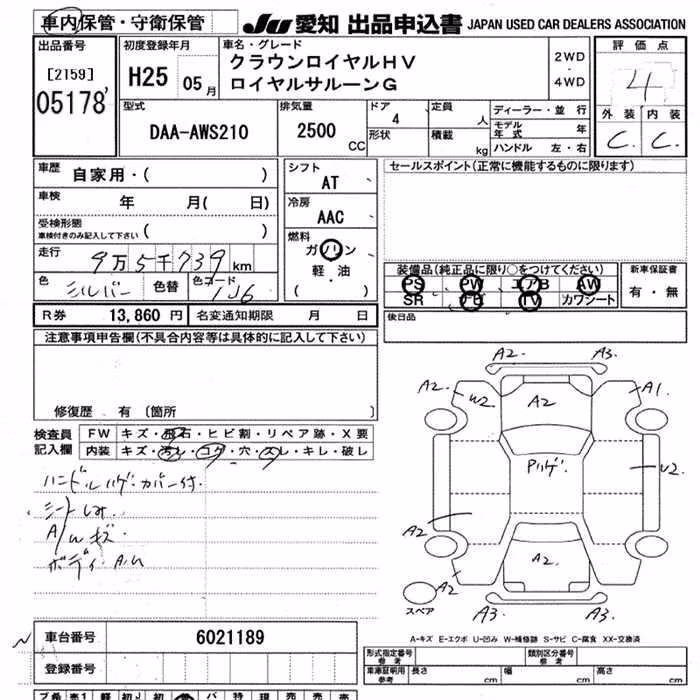 車内保管・守衛保管
JU 愛知 出品申込書 JAPAN USED CAR DEALERS ASSOCIATION
出品番号
[2159]
05178
初度登録年月
H25 05月
車名・グレード
クラウンロイヤルHV
ロイヤルサルーンG
2WD
・
4WD
評価点
4
外装 内装
C. C.
型式
DAA-AWS210
排気量
2500
CC
ドア
4
形状
定員
人
積載
kg
ディーラー・並行
モデル年式 年
ハンドル 左・右
車歴
自家用・( )
車検
年 月( 日)
受検形態
車検付きのみ記入して下さい ( )
走行
9万5千739km
色
シルバー
色替
色コード
1J6
シフト
AT
冷房
AAC
燃料
ガソリン
軽・油
( )
セールスポイント(正常に機能するものに限ります)
装備品(純正品に限り○をつけてください)
PS PW エアB AW
SR ナビ TV カワシート
新車保証書
有・無
後日品
R券 13,860円 名変通知期限 月 日
注意事項申告欄(不具合内容等は具体的に記入して下さい)
修復歴 有 〔箇所 〕
検査員
記入欄
FW キズ・飛石・ヒビ割・リペア跡・X要
内装 キズ・汚レ・コゲ・穴・スレ・キレ・破レ
ハンドルハゲ・カバー付.
シートしみ.
A/wキズ
ボディ・A.U
A2. A3.
A2. W2 A2 A1.
Pハゲ. W2.
A2
A2 A2. A2.
A3. A3.
スペア
A-キズ E-エクボ U-凹み W-補修跡 S-サビ C-腐食 XX-交換済
車台番号 6021189
登録番号
形式指定番号
参考
類別区分番号
参考
車庫証明用
参考
長さ cm 幅 cm 高さ cm